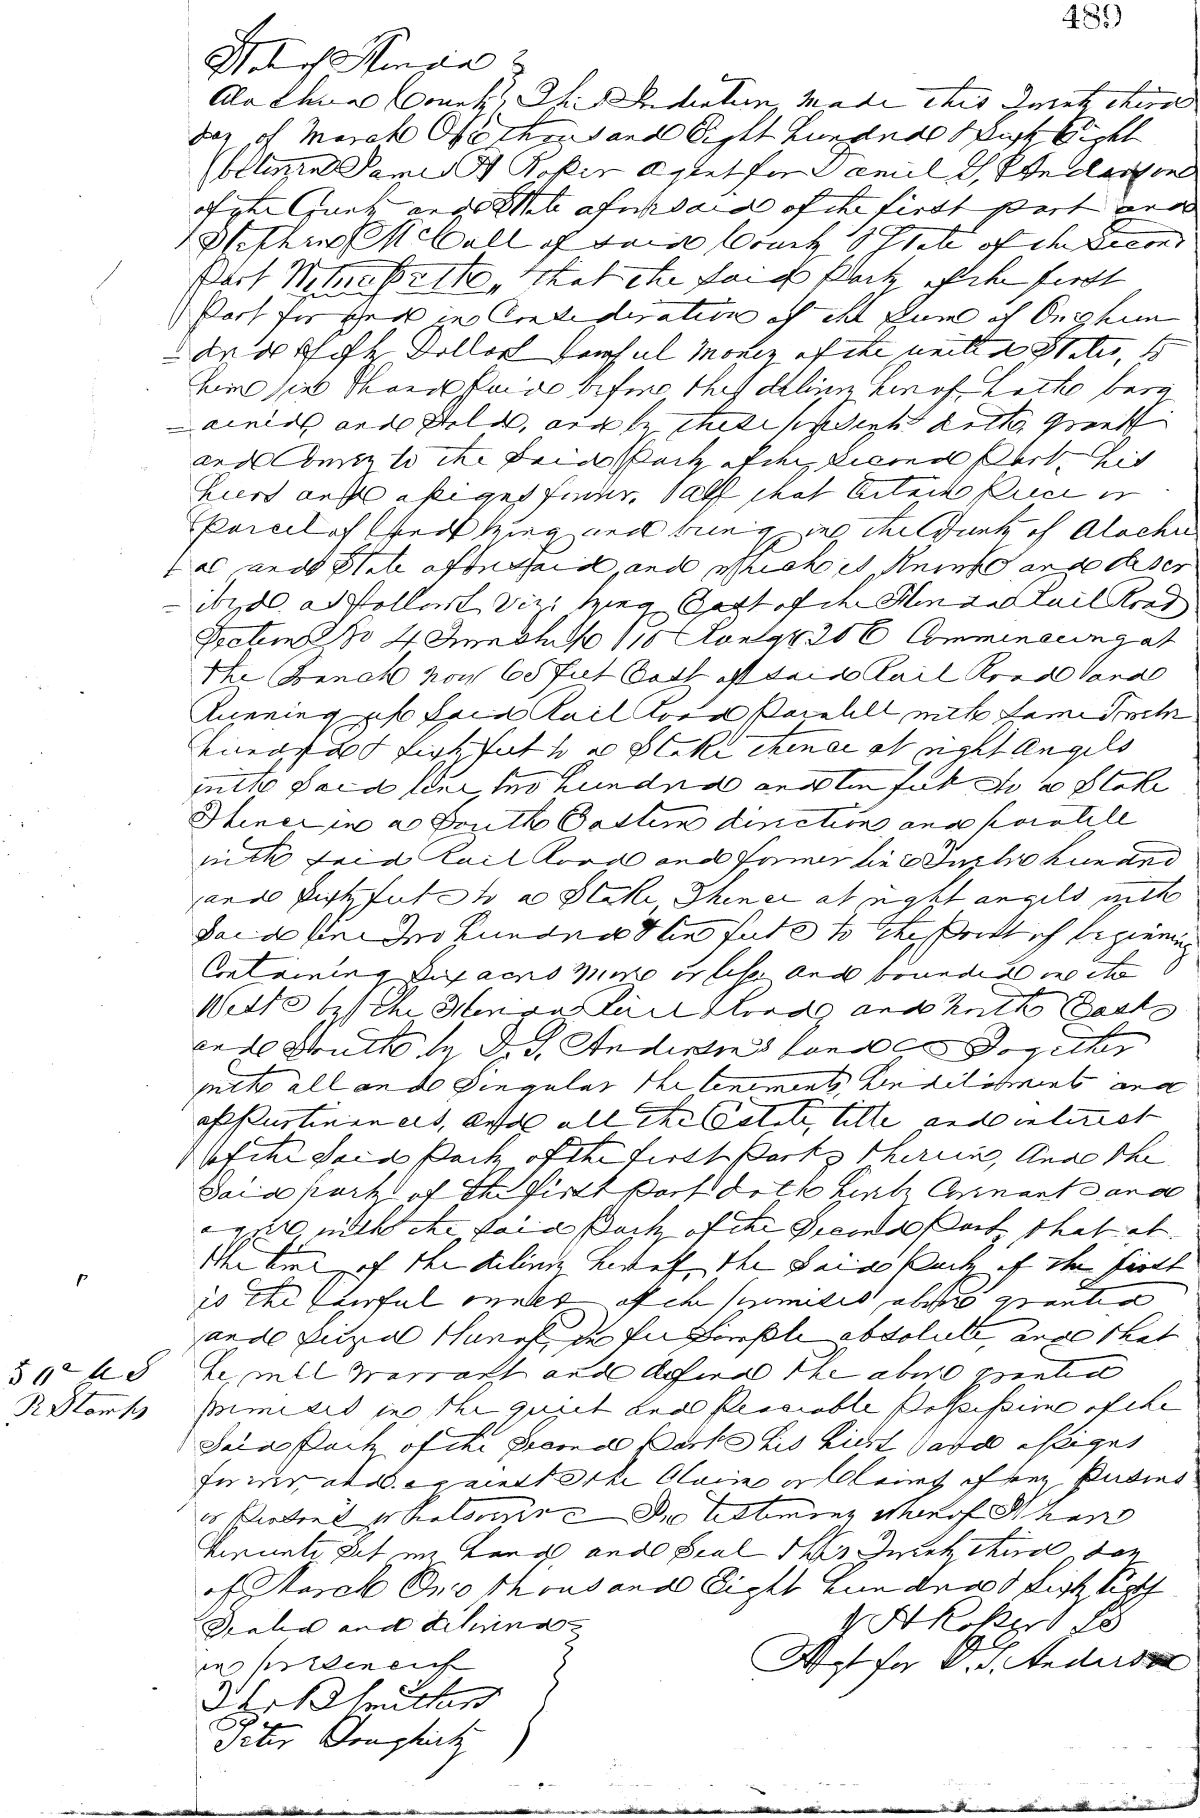 489
State of Florida }
Alachua County } This Indenture made this Twenty third
day of March One thousand Eight hundred & Sixty Eight
between James H Roper agent for Daniel S, Anderson
of the County and State aforesaid of the first part and
Stephen McCall of said County & State of the Second
Part Witnesseth, that the Said Party of the first
Part for and in Consideration of the Sum of One hun
= dred & fifty Dollars lawful money of the united States, to
him in hand Paid before the delivery hereof, hath barg
= ained and Sold, and by these presents doth grant
and Convey to the Said Party of the Second Part, his
heirs and assigns forever, all that Certain Piece or
Parcel of land lying and being in the County of Alachu
= a and State aforesaid, and which is Known and descr
= ibed as follows, Viz; lying East of the Florida Rail Road
Section No 4, Township 10 Range 20 E Commenceing at
the Branch now 65 feet East of said Rail Road and
Running up Said Rail Road Paralell with Same Twelve
hundred & Sixty feet to a Stake thence at right Angels
with Said line two hundred and ten feet to a Stake
Thence in a South Eastern direction and paralell
with said Rail Road and former line Twelve hundred
and Sixty feet to a Stake, Thence at right angels with
Said line Two hundred & ten feet to the Point of beginning
Containing Six acres more or less and bounded on the
West by the Florida Rail Road, and North East
and South by D. S. Anderson's land Together
with all and Singular the tenements, hereditaments and
appurtinances, and all the Estate, title and interest
of the Said Party of the first Part therein, And the
Said party of the first Part doth hereby Covenant and
agree with the Said Party of the Second Part, that at
the time of the delivery hereof, the Said Party of the first
is the lawful owner of the premises above granted
and Seized thereof, in fee Simple absolute, and that
he will warrant and defend the above granted
premises in the quiet and Peaceable Possession of the
Said Party of the Second Part his heirs and assigns
forever, and against the Claim or Claims of any Persons
or Persons whatsoever In testimony whereof I have
hereunto Set my hand and Seal this Twenty third day
of March One thousand Eight hundred & Sixty Eight
Sealed and delivered
in presence of
J H Roper LS
Agt for D. S. Anderson
Peter Dougherty
R Stamps